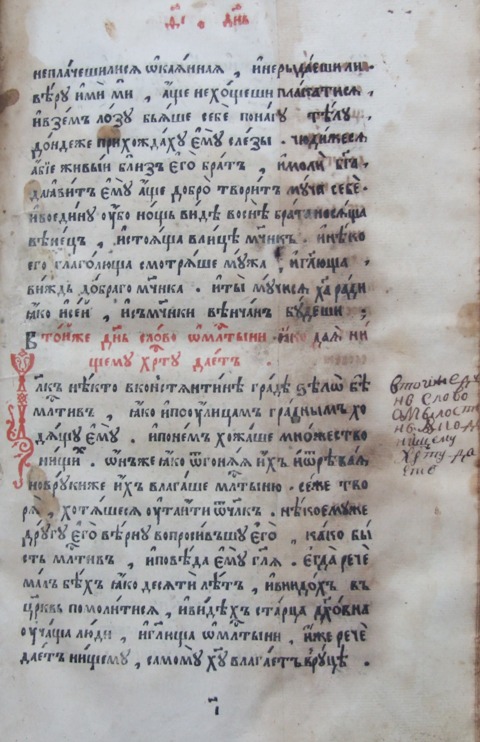 д҃і . дн҃ь
неплачешилися ѡ҆каѧ́ннаѧ , и҆нерыда́еши ли .
вѣ́рꙋ и҆мѝ ми , а҆́ще нехо́щеши пла́катисѧ ,
и҆взе́мъ ло́зꙋ бїѧ́ше себе пона́гꙋ тѣ́лꙋ ,
до́ндеже прихожда́хꙋ є҆мꙋ̀ сле́зы .
а҆́бїе живы́й бли́зъ є҆гѡ̀ бра́тъ , и҆молѝ бг҃а ,
даꙗ҆ви́тъ є҆мꙋ̀ а҆́ще добро̀ твори́тъ мꙋ́чѧ себѐ .
и҆воеди́нꙋ ᲂу҆́бо но́щь ви́дѣ восنѣ̀ бра́та носѧ́ща
вѣне́цъ , и҆стоѧ́ща влицѣ̀ мч҃нкъ . и҆нѣ́ко
его̀ глаго́люща смотрѧ́ше мꙋ́жа , и҆гл҃юща ,
ви́ждь до́браго мч҃нка . и҆ты̀ мꙋ́чисѧ хр҃а̀ ра́ди
ꙗ҆́ко и҆се́й , и҆съмч҃ники вѣнча́нъ бꙋ́деши ;
В то́йже дн҃ь сло́во ѡ҆млⷭ҇тыни . ꙗ҆́ко даѧ́й ни́
щемꙋ хрⷭ҇тꙋ̀ дае́тъ .
чл҃къ нѣ́кто вконстѧнти́нѣ гра́дѣ ѕѣлѡ̀ бѣ̀
млⷭ҇тивъ , ꙗ҆́ко и҆поᲂу҆́лицамъ гра́днымъ хо
дѧ́щꙋ є҆мꙋ̀ . и҆поне́мъ хожа́ше мно́жество
ни́щиⷯ . ѻ҆́нъже ꙗ҆́ко ѿгонѧ́ѧ и҆́хъ и҆ѿрѣва́ѧ
новрꙋ́киже и҆́хъ влага́ше млⷭ҇тыню . се́же тво
рѧ̀ , хотѧ́шесѧ ᲂу҆таи́ти ѿчл҃къ . нѣ́коемꙋже
дрꙋ́гꙋ є҆гѡ̀ вѣ́рнꙋ вопроси́въшꙋ є҆гѡ̀ , ка́ко бы́
сть млⷭ҇тивъ , и҆повѣ́да є҆мꙋ̀ гл҃ѧ . є҆гда̀ речѐ
ма́лъ бѣ́хъ ꙗ҆́ко десѧтѝ лѣ́тъ , и҆вни́дохъ въ
цр҃ковь помоли́тисѧ , и҆ви́дѣхъ ста́рца дх҃о́вна
ᲂу҆ча́ща лю́ди , и҆гл҃юща ѡ҆млⷭ҇тыни , и҆́же речѐ
дае́тъ ни́щемꙋ , самомꙋ̀ хр҃ꙋ̀ влага́етъ врꙋ́цѣ .
в точиже д
нь слово
о мѧлост
нищему
хр҃ту да
ı҆